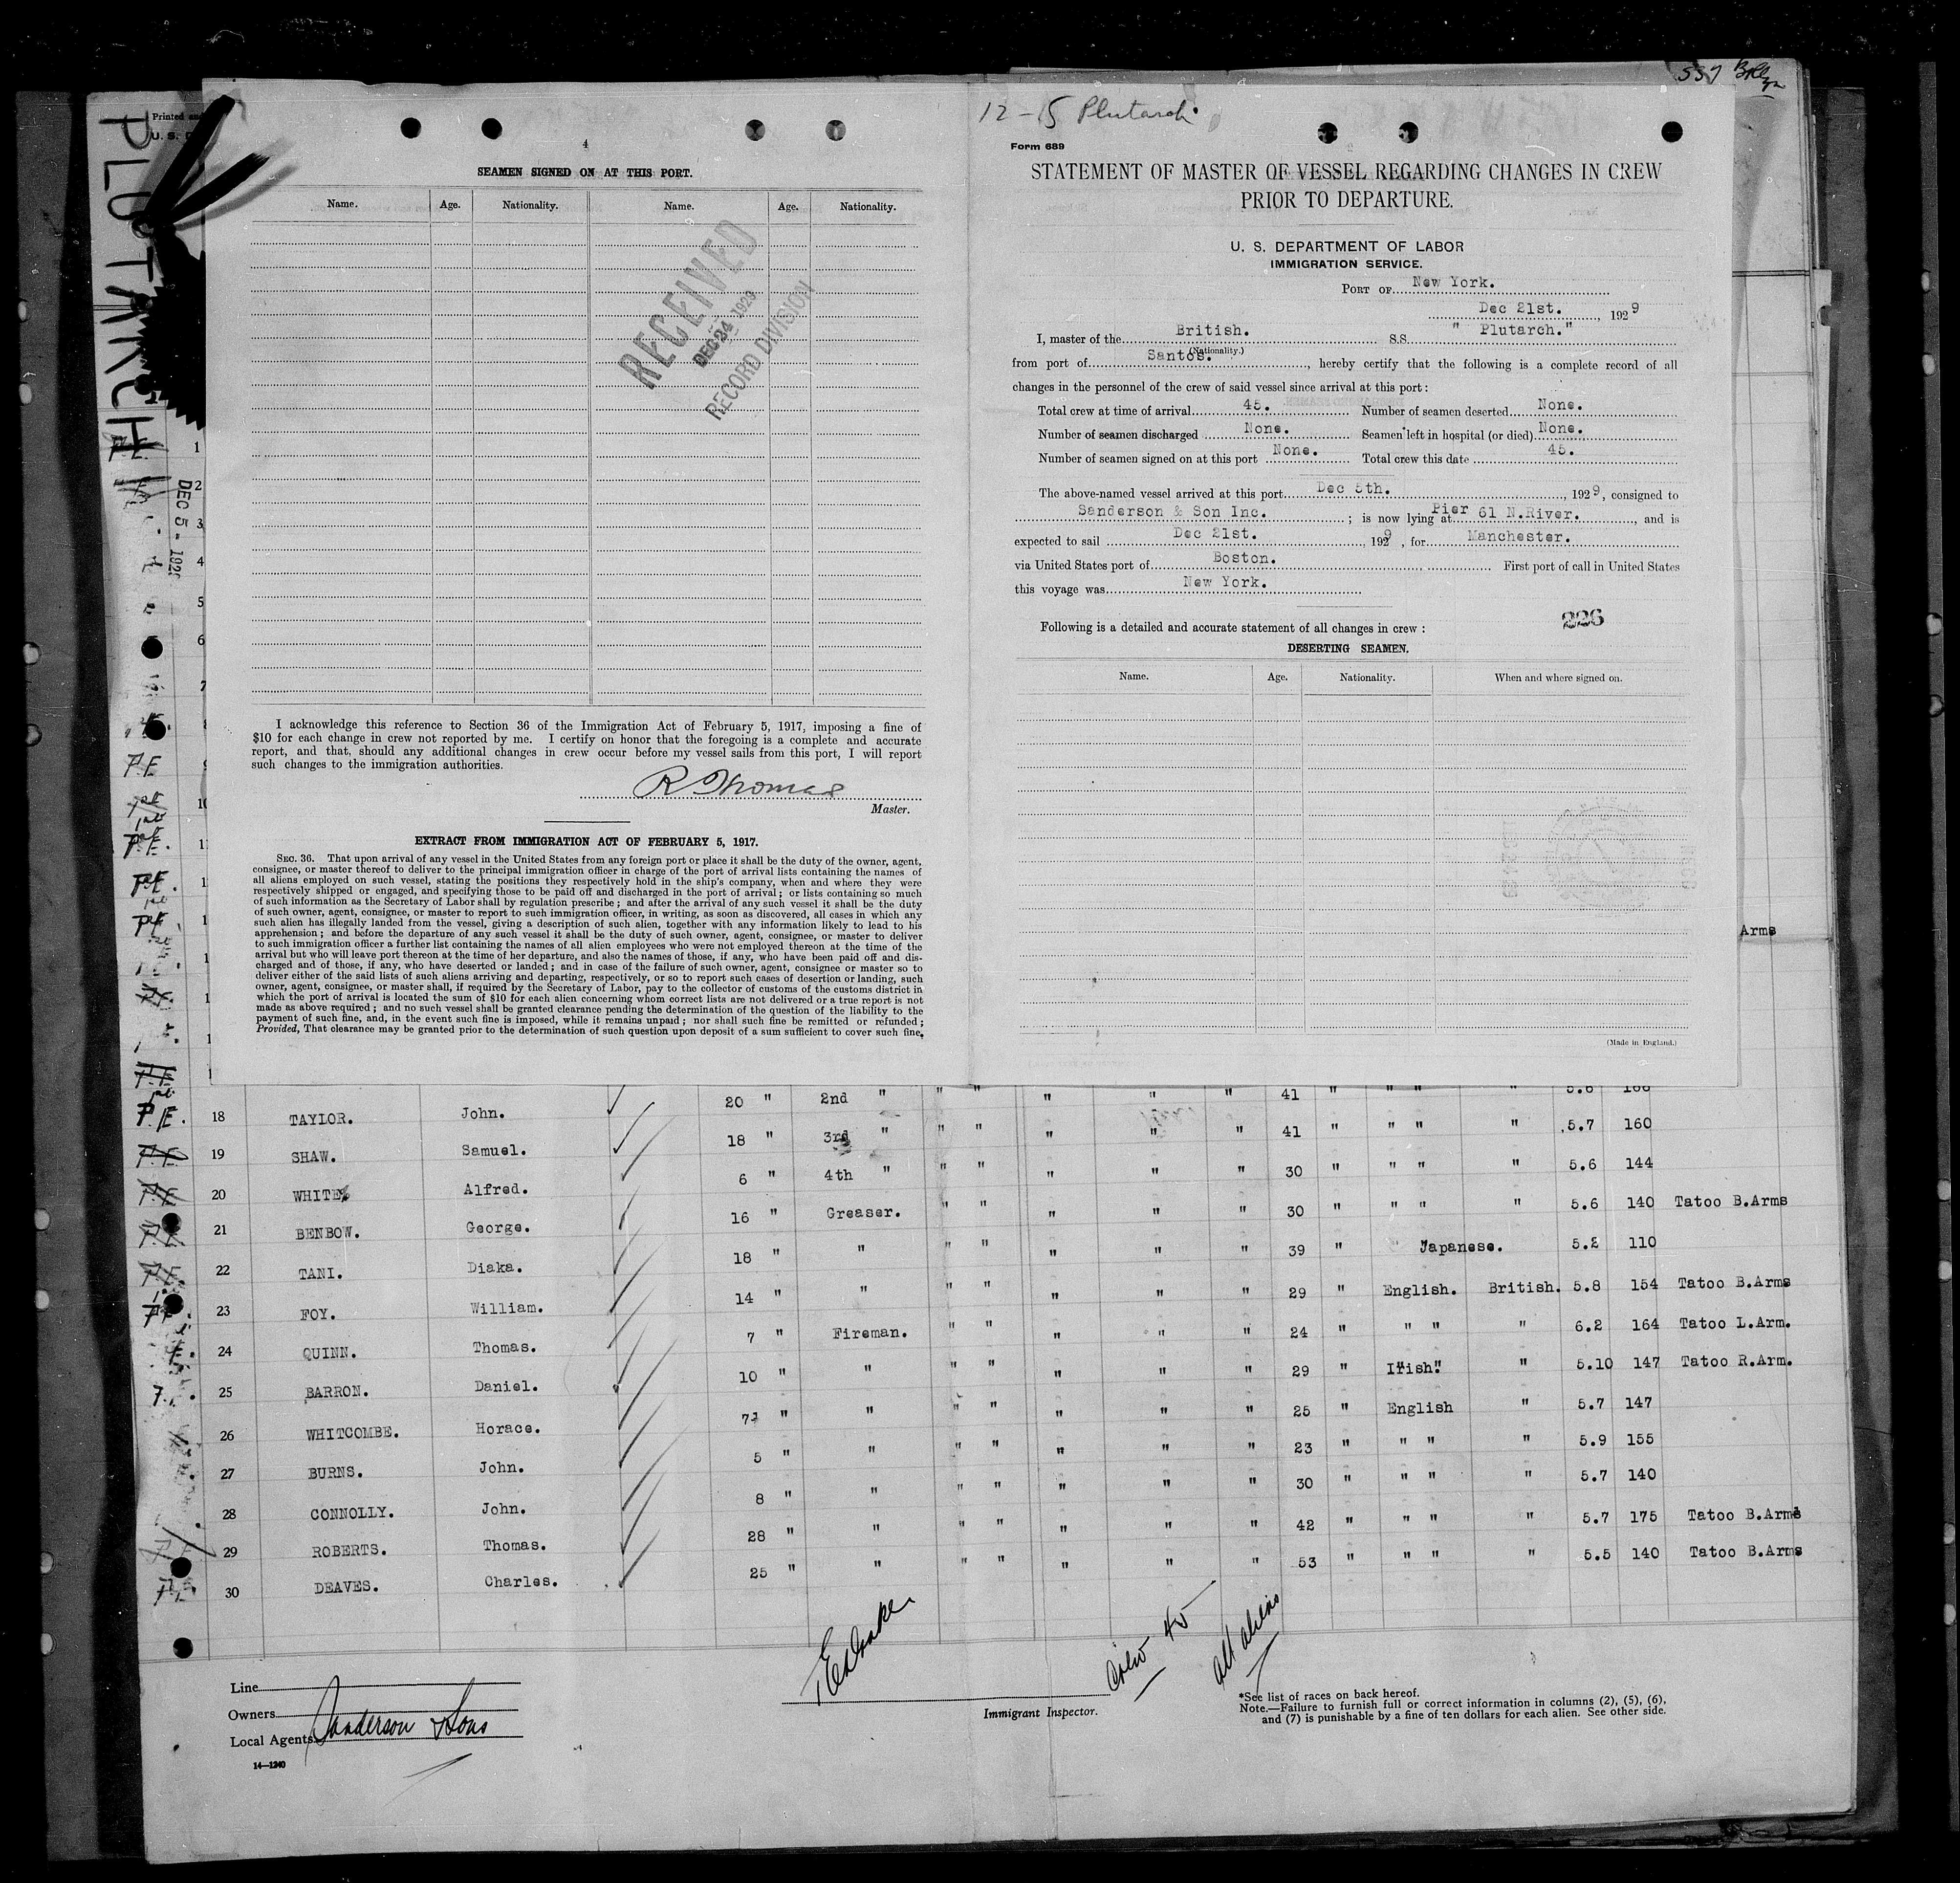 PLUTARCH
DEC 5 - 192
4
SEAMEN SIGNED ON AT THIS PORT.
Name. Age. Nationality. Name. Age. Nationality.
RECEIVED
RECORD DIVISION
I acknowledge this reference to Section 36 of the Immigration Act of February 5, 1917, imposing a fine of
$10 for each change in crew not reported by me. I certify on honor that the foregoing is a complete and accurate
report, and that, should any additional changes in crew occur before my vessel sails from this port, I will report
such changes to the immigration authorities.
R Thomas
Master.
EXTRACT FROM IMMIGRATION ACT OF FEBRUARY 5, 1917.
SEC. 36. That upon arrival of any vessel in the United States from any foreign port or place it shall be the duty of the owner, agent,
consignee, or master thereof to deliver to the principal immigration officer in charge of the port of arrival lists containing the names of
all aliens employed on such vessel, stating the positions they respectively hold in the ship's company, when and where they were
respectively shipped or engaged, and specifying those to be paid off and discharged in the port of arrival; or lists containing so much
of such information as the Secretary of Labor shall by regulation prescribe; and after the arrival of any such vessel it shall be the duty
of such owner, agent, consignee, or master to report to such immigration officer, in writing, as soon as discovered, all cases in which any
such alien has illegally landed from the vessel, giving a description of such alien, together with any information likely to lead to his
apprehension; and before the departure of any such vessel it shall be the duty of such owner, agent, consignee, or master to deliver
to such immigration officer a further list containing the names of all alien employees who were not employed thereon at the time of the
arrival but who will leave port thereon at the time of her departure, and also the names of those, if any, who have been paid off and dis-
charged and of those, if any, who have deserted or landed; and in case of the failure of such owner, agent, consignee or master so to
deliver either of the said lists of such aliens arriving and departing, respectively, or so to report such cases of desertion or landing, such
owner, agent, consignee, or master shall, if required by the Secretary of Labor, pay to the collector of customs of the customs district in
which the port of arrival is located the sum of $10 for each alien concerning whom correct lists are not delivered or a true report is not
made as above required; and no such vessel shall be granted clearance pending the determination of the question of the liability to the
payment of such fine, and, in the event such fine is imposed, while it remains unpaid; nor shall such fine be remitted or refunded;
Provided, That clearance may be granted prior to the determination of such question upon deposit of a sum sufficient to cover such fine.
537
12-15 Plutarch
Form 689
STATEMENT OF MASTER OF VESSEL REGARDING CHANGES IN CREW
PRIOR TO DEPARTURE.
U. S. DEPARTMENT OF LABOR
IMMIGRATION SERVICE.
PORT OF New York.
Dec 21st. , 1929
I, master of the British. S.S. " Plutarch."
(Nationality.)
from port of Santos. , hereby certify that the following is a complete record of all
changes in the personnel of the crew of said vessel since arrival at this port:
Total crew at time of arrival 45. Number of seamen deserted None.
Number of seamen discharged None. Seamen left in hospital (or died) None.
Number of seamen signed on at this port None. Total crew this date 45.
The above-named vessel arrived at this port Dec 5th. , 1929, consigned to
Sanderson & Son Inc. ; is now lying at Pier 61 N.River. , and is
expected to sail Dec 21st. , 1929 , for Manchester.
via United States port of Boston. First port of call in United States
this voyage was New York.
226
Following is a detailed and accurate statement of all changes in crew :
DESERTING SEAMEN.
Name. Age. Nationality. When and where signed on.
(Made in England.)
Arms
18 TAYLOR. John. 20 " 2nd " " " " " " 41 " " " " 5.6
19 SHAW. Samuel. 18 " 3rd " " " " " " 41 " " " " 5.7 160
20 WHITE. Alfred. 6 " 4th " " " " " " 30 " " " " 5.6 144
21 BENBOW. George. 16 " Greaser. " " " " " 30 " " " " 5.6 140 Tatoo B.Arms
22 TANI. Diaka. 18 " " " " " " " 39 " Japanese. 5.2 110
23 FOY. William. 14 " " " " " " " 29 " English. British. 5.8 154 Tatoo B.Arms
24 QUINN. Thomas. 7 " Fireman. " " " " " 24 " " " " 6.2 164 Tatoo L.Arm.
25 BARRON. Daniel. 10 " " " " " " " 29 " Irish. " 5.10 147 Tatoo R.Arm.
26 WHITCOMBE. Horace. 7 " " " " " " " 25 " English " 5.7 147
27 BURNS. John. 5 " " " " " " " 23 " " " " 5.9 155
28 CONNOLLY. John. 8 " " " " " " " 30 " " " " 5.7 140
29 ROBERTS. Thomas. 28 " " " " " " " 42 " " " " 5.7 175 Tatoo B.Arms
30 DEAVES. Charles. 25 " " " " " " " 53 " " " " 5.5 140 Tatoo B.Arms
Crew 45
all aliens
Line
Owners
Local Agents Sanderson & Sons
14—1240
Immigrant Inspector.
*See list of races on back hereof.
Note.—Failure to furnish full or correct information in columns (2), (5), (6),
and (7) is punishable by a fine of ten dollars for each alien. See other side.